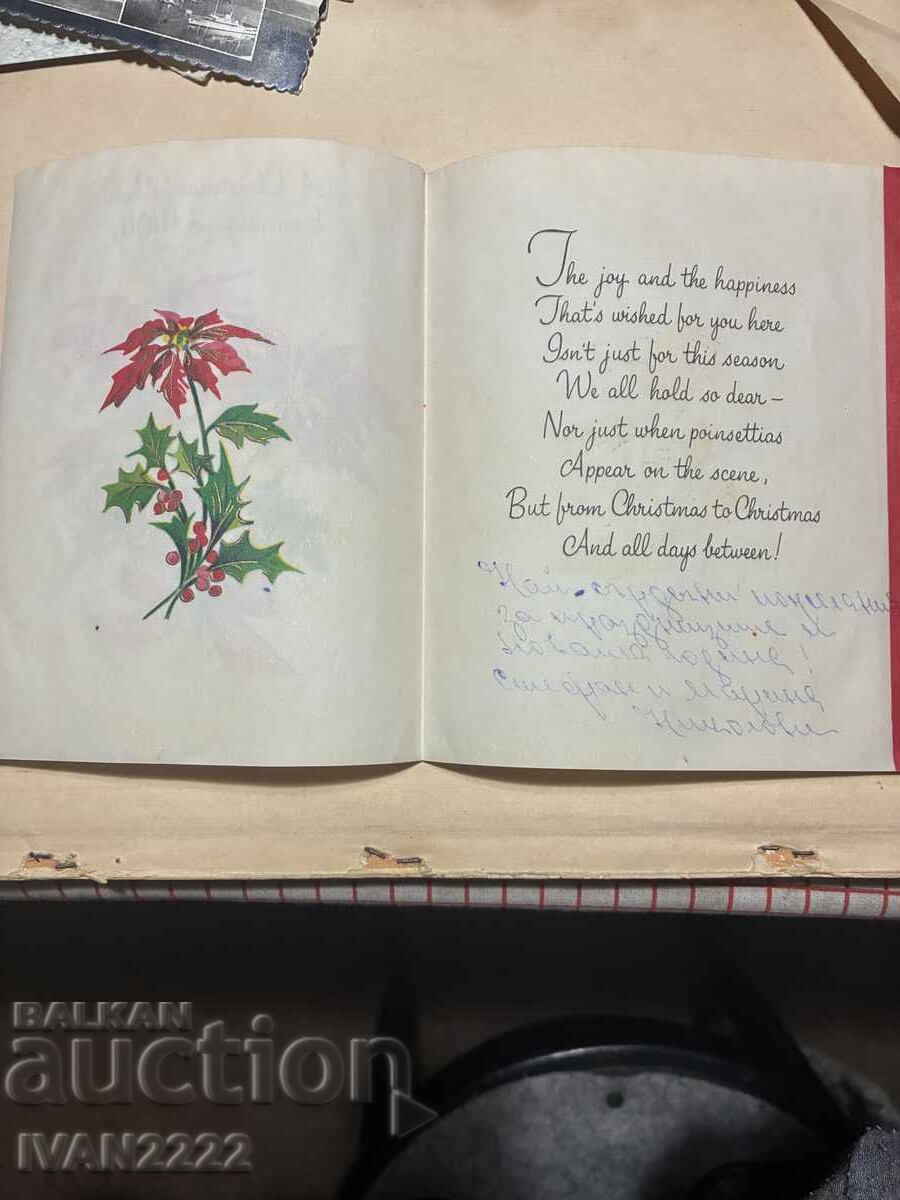 The joy and the happiness
That's wished for you here
Isn't just for this season
We all hold so dear –
Nor just when poinsettias
Appear on the scene,
But from Christmas to Christmas
And all days between!
Най-сърдечни пожелания
за празниците и
Новата година!
Стефан и Марина
Николови
BALKAN
auction
IVAN2222